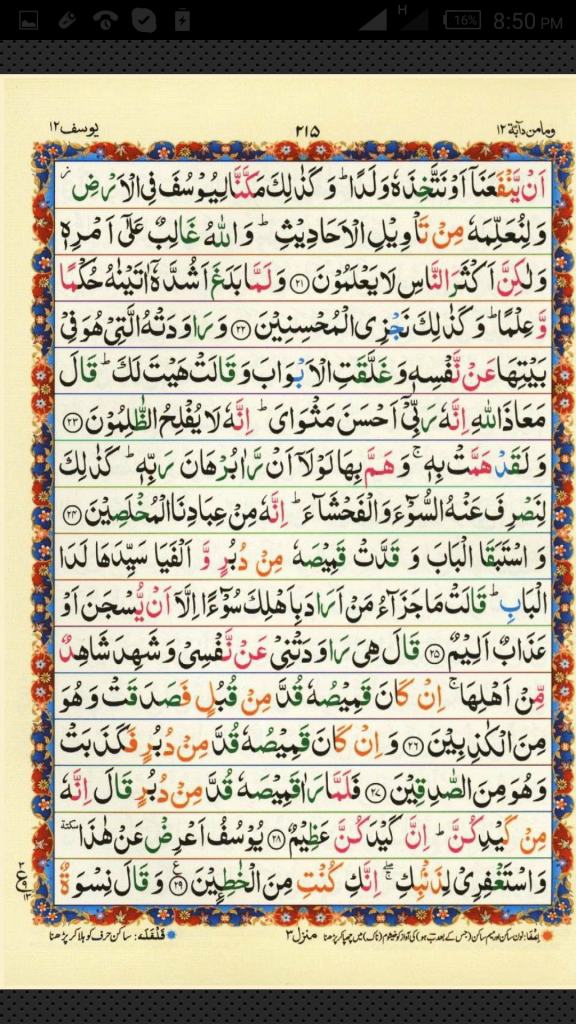 H 16% 8:50 PM
یوسف ١٢ ٢١٥ ومامن دآبة ١٢
اَنْ يَّنْفَعَنَاۤ اَوْ نَتَّخِذَهٗ وَلَدًا ؕ وَ كَذٰلِكَ مَكَّنَّا لِيُوْسُفَ فِى الْاَرْضِ ز
وَلِنُعَلِّمَهٗ مِنْ تَاْوِيْلِ الْاَحَادِيْثِ ؕ وَ اللّٰهُ غَالِبٌ عَلٰٓى اَمْرِهٖ
وَلٰكِنَّ اَكْثَرَ النَّاسِ لَا يَعْلَمُوْنَ ﴿٢١﴾ وَ لَمَّا بَلَغَ اَشُدَّهٗۤ اٰتَيْنٰهُ حُكْمًا
وَّ عِلْمًا ؕ وَ كَذٰلِكَ نَجْزِى الْمُحْسِنِيْنَ ﴿٢٢﴾ وَ رَاوَدَتْهُ الَّتِىْ هُوَ فِىْ
بَيْتِهَا عَنْ نَّفْسِهٖ وَ غَلَّقَتِ الْاَبْوَابَ وَ قَالَتْ هَيْتَ لَكَ ؕ قَالَ
مَعَاذَ اللّٰهِ اِنَّهٗ رَبِّىْۤ اَحْسَنَ مَثْوَاىَ ؕ اِنَّهٗ لَا يُفْلِحُ الظّٰلِمُوْنَ ﴿٢٣﴾
وَ لَقَدْ هَمَّتْ بِهٖ ۚ وَ هَمَّ بِهَا لَوْلَاۤ اَنْ رَّاٰ بُرْهَانَ رَبِّهٖ ؕ كَذٰلِكَ
لِنَصْرِفَ عَنْهُ السُّوْٓءَ وَ الْفَحْشَآءَ ؕ اِنَّهٗ مِنْ عِبَادِنَا الْمُخْلَصِيْنَ ﴿٢٤﴾
وَ اسْتَبَقَا الْبَابَ وَ قَدَّتْ قَمِيْصَهٗ مِنْ دُبُرٍ وَّ اَلْفَيَا سَيِّدَهَا لَدَا
الْبَابِ ؕ قَالَتْ مَا جَزَآءُ مَنْ اَرَادَ بِاَهْلِكَ سُوْٓءًا اِلَّاۤ اَنْ يُّسْجَنَ اَوْ
عَذَابٌ اَلِيْمٌ ﴿٢٥﴾ قَالَ هِىَ رَاوَدَتْنِىْ عَنْ نَّفْسِىْ وَ شَهِدَ شَاهِدٌ
مِّنْ اَهْلِهَا ۚ اِنْ كَانَ قَمِيْصُهٗ قُدَّ مِنْ قُبُلٍ فَصَدَقَتْ وَ هُوَ
مِنَ الْكٰذِبِيْنَ ﴿٢٦﴾ وَ اِنْ كَانَ قَمِيْصُهٗ قُدَّ مِنْ دُبُرٍ فَكَذَبَتْ
وَ هُوَ مِنَ الصّٰدِقِيْنَ ﴿٢٧﴾ فَلَمَّا رَاٰ قَمِيْصَهٗ قُدَّ مِنْ دُبُرٍ قَالَ اِنَّهٗ
مِنْ كَيْدِكُنَّ ؕ اِنَّ كَيْدَكُنَّ عَظِيْمٌ ﴿٢٨﴾ يُوْسُفُ اَعْرِضْ عَنْ هٰذَا سكتة
وَ اسْتَغْفِرِىْ لِذَنْۢبِكِ ۖۚ اِنَّكِ كُنْتِ مِنَ الْخٰطِـِٕيْنَ ﴿٢٩﴾ ع وَ قَالَ نِسْوَةٌ
ع ٣ ٩ ١٣
اِخفَا: نون ساکن اور میم ساکن (جس کے بعد ب ہو) کی آواز کو خیشوم (ناک) میں چھپا کر پڑھنا منزل ٣ قَلْقَلَه: ساکن حرف کو ہلا کر پڑھنا